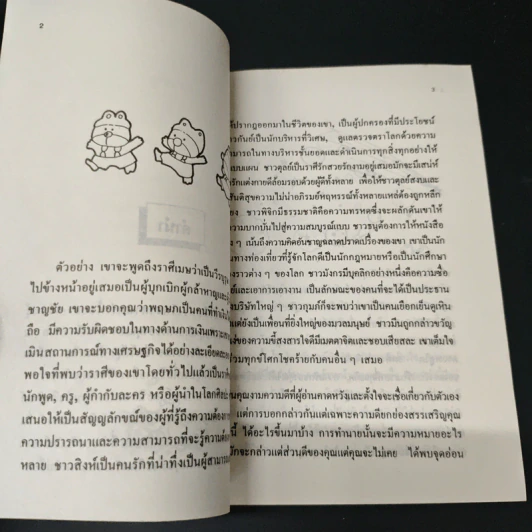 ๑
ตัวอย่าง เขาจะพูดถึงราศีเมษว่าเป็น
ไปข้างหน้าอยู่เสมอเป็นผู้บุกเบิกผู้กล้าหาญและ
ชาญชัย เขาจะบอกคุณว่าพฤษภเป็นคนที่
ถือ มีความรับผิดชอบในทางด้านการเงินเพราะ
เมินสถานการณ์ทางเศรษฐกิจได้อย่างละเอียด
พอใจที่พบว่าราศีของเขาโดยทั่วไปแล้วเป็น
นักพูด, ครู, ผู้กำกับละคร หรือผู้นำในโลก
เสนอให้เป็นสัญญลักขณ์ของผู้ที่รู้ถึงความต้อง
ความปรารถนาและความสามารถที่จะรู้ความ
หลาย ชาวสิงห์เป็นคนรักที่น่าทึ่งเป็นผู้สามารถ
คำนำ
ปรากฏออกมาในชีวิตของเขา, เป็นผู้ปกครองที่มีประโยชน์
กันย์เป็นนักบริหารที่วิเศษ, ดูแลตรวจตราโลกด้วยความ
สามารถในทางบริหารชั้นยอดและดำเนินการทุกสิ่งทุกอย่างให้
แบบแผน ชาวตุลย์เป็นราศีรักสวยรักงามอยู่เสมอมักจะมีเสน่ห์
รักแต่งกายดีล้อมรอบด้วยผู้ดีทั้งหลาย เพื่อให้ชาวตุลย์สงบและ
สันติสุขความไม่น่าอภิรมย์หฤหรรณ์ทั้งหลายแหล่ต้องถูกหลีก
ชาวพิจิกมีธรรมชาติคือความทรหดซึ่งจะผลักดันเขาให้
ความยากบั่นไปสู่ความสมบูรณ์แบบ ชาวธนูต้องการให้หนังสือ
ๆ เน้นถึงความคิดอันชาญฉลาดปราดเปรื่องของเขา เขาเป็นนัก
ท่องเที่ยวที่รู้จักโลกดีเป็นนักกฎหมายหรือเป็นนักศึกษา
ราวต่าง ๆ ของโลก ชาวมังกรมีบุคลิกอย่างหนึ่งคือความซื่อ
และเอาการเอางาน เป็นลักษณะของคนที่จะได้เป็นประธาน
บริษัทใหญ่ ๆ ชาวกุมภ์ก็จะพบว่าเขาเป็นคนเยือกเย็นดูเหิน
แต่ยังเป็นเพื่อนที่ยิ่งใหญ่ของมวลมนุษย์ ชาวมีนถูกกล่าวขวัญ
ของความขี้สงสารใจดีมีเมตตาจิตและชอบเสียสละ เขาเต็มใจ
ร่วมทุกข์โศกโชคร้ายกับคนอื่น ๆ เสมอ
คุณงามความดีที่ผู้อ่านคาดหวังและตั้งใจจะเชื่อเกี่ยวกับตัวเอง
แต่การบอกกล่าวกันแต่เฉพาะความดียกย่องสรรเสริญคุณ
นี้ ได้อะไรขึ้นมาบ้าง การทำนายนั้นจะมีความหมายอะไร
จะกล่าวแต่ส่วนดีของคุณแต่คุณจะไม่เคย ได้พบจุดอ่อน